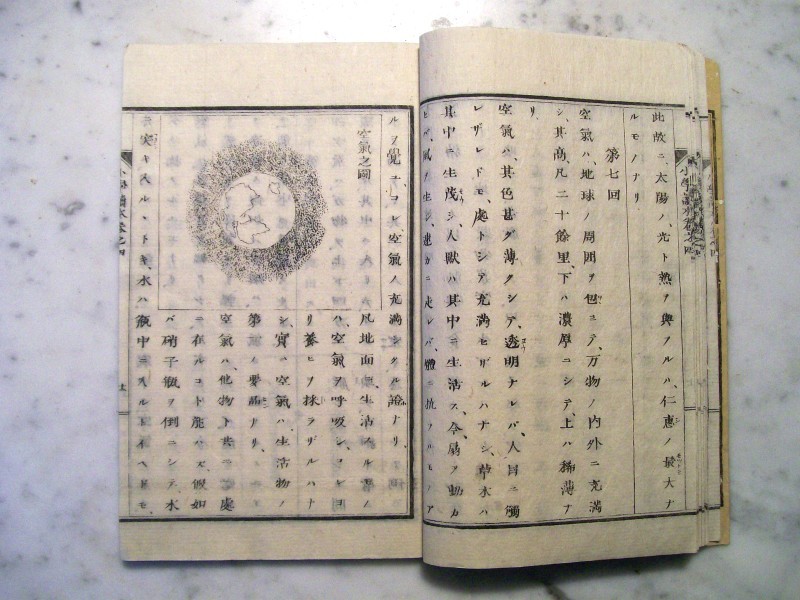 此故ニ、太陽ノ、光ト熱ヲ與フルハ、仁惠ノ最大ナ
ルモノナリ、
第七回
空氣ハ、地球ノ周囲ヲ包ミテ、万物ノ内外ニ充満
シ、其高、凡二十餘里、下ハ濃厚ニシテ、上ハ稀薄ナ
リ、
空氣ハ、其色甚ダ薄クシテ、透明ナレバ、人目ニ觸
レザレドモ、處トシテ充満セザルハナシ、草木ハ
其中ニ生茂シ、人獸ハ其中ニ生活ス、今扇ヲ動カ
セバ、風ノ生ジ、速カニ走レバ、體ニ抗フルモノア
ルヲ覺ユ、コレ空氣ノ充満シタル證ナリ、
空氣之圖
凡地面ニ生活スル者
ハ、空氣ヲ呼吸シ、コレヨ
リ養ヒヲ採ラザルハナ
シ、實ニ空氣ハ、生活物ノ
第一ノ要品ナリ、
空氣ハ、他物ト共ニ一處
ニ在ルコト能ハズ、假如
バ硝子瓶ヲ倒ニシテ水
ニ突キ入ルヽトキ、水ハ瓶中ニ入ルトイヘドモ、